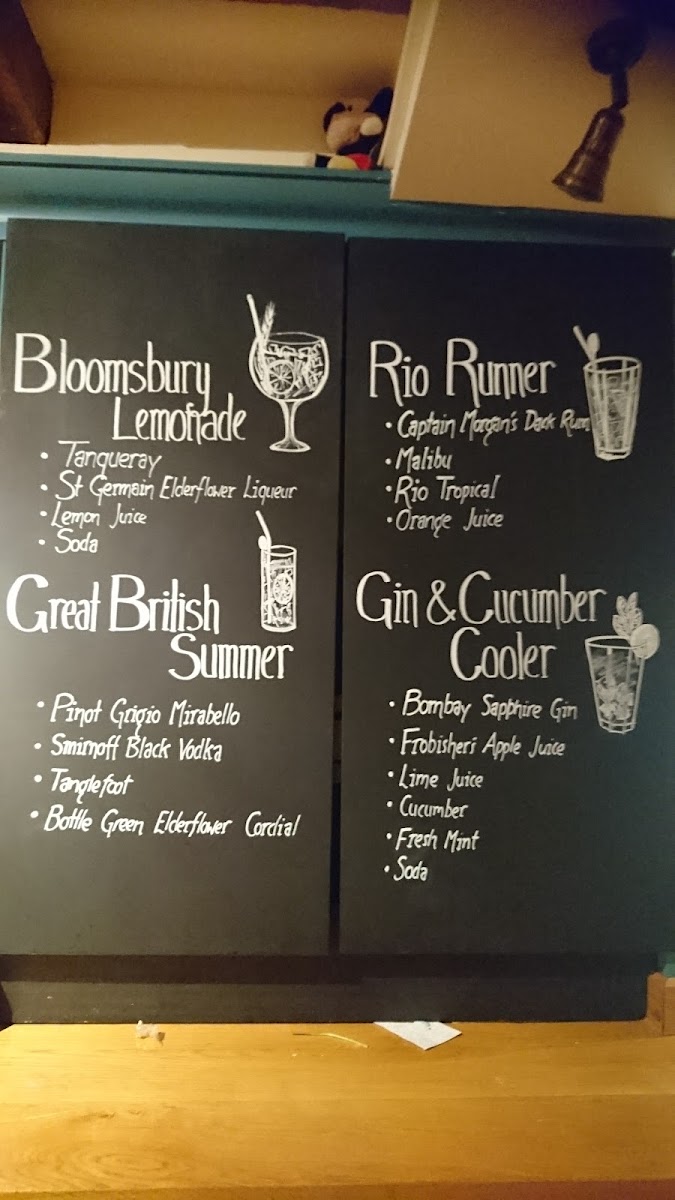 Bloomsbury
Lemonade
• Tanqueray
• St Germain Elderflower Liqueur
• Lemon Juice
• Soda
Great British
Summer
• Pinot Grigio Mirabello
• Smirnoff Black Vodka
• Tanglefoot
• Bottle Green Elderflower Cordial
Rio Runner
• Captain Morgan's Dark Rum
• Malibu
• Rio Tropical
• Orange Juice
Gin & Cucumber
Cooler
• Bombay Sapphire Gin
• Frobisher's Apple Juice
• Lime Juice
• Cucumber
• Fresh Mint
• Soda